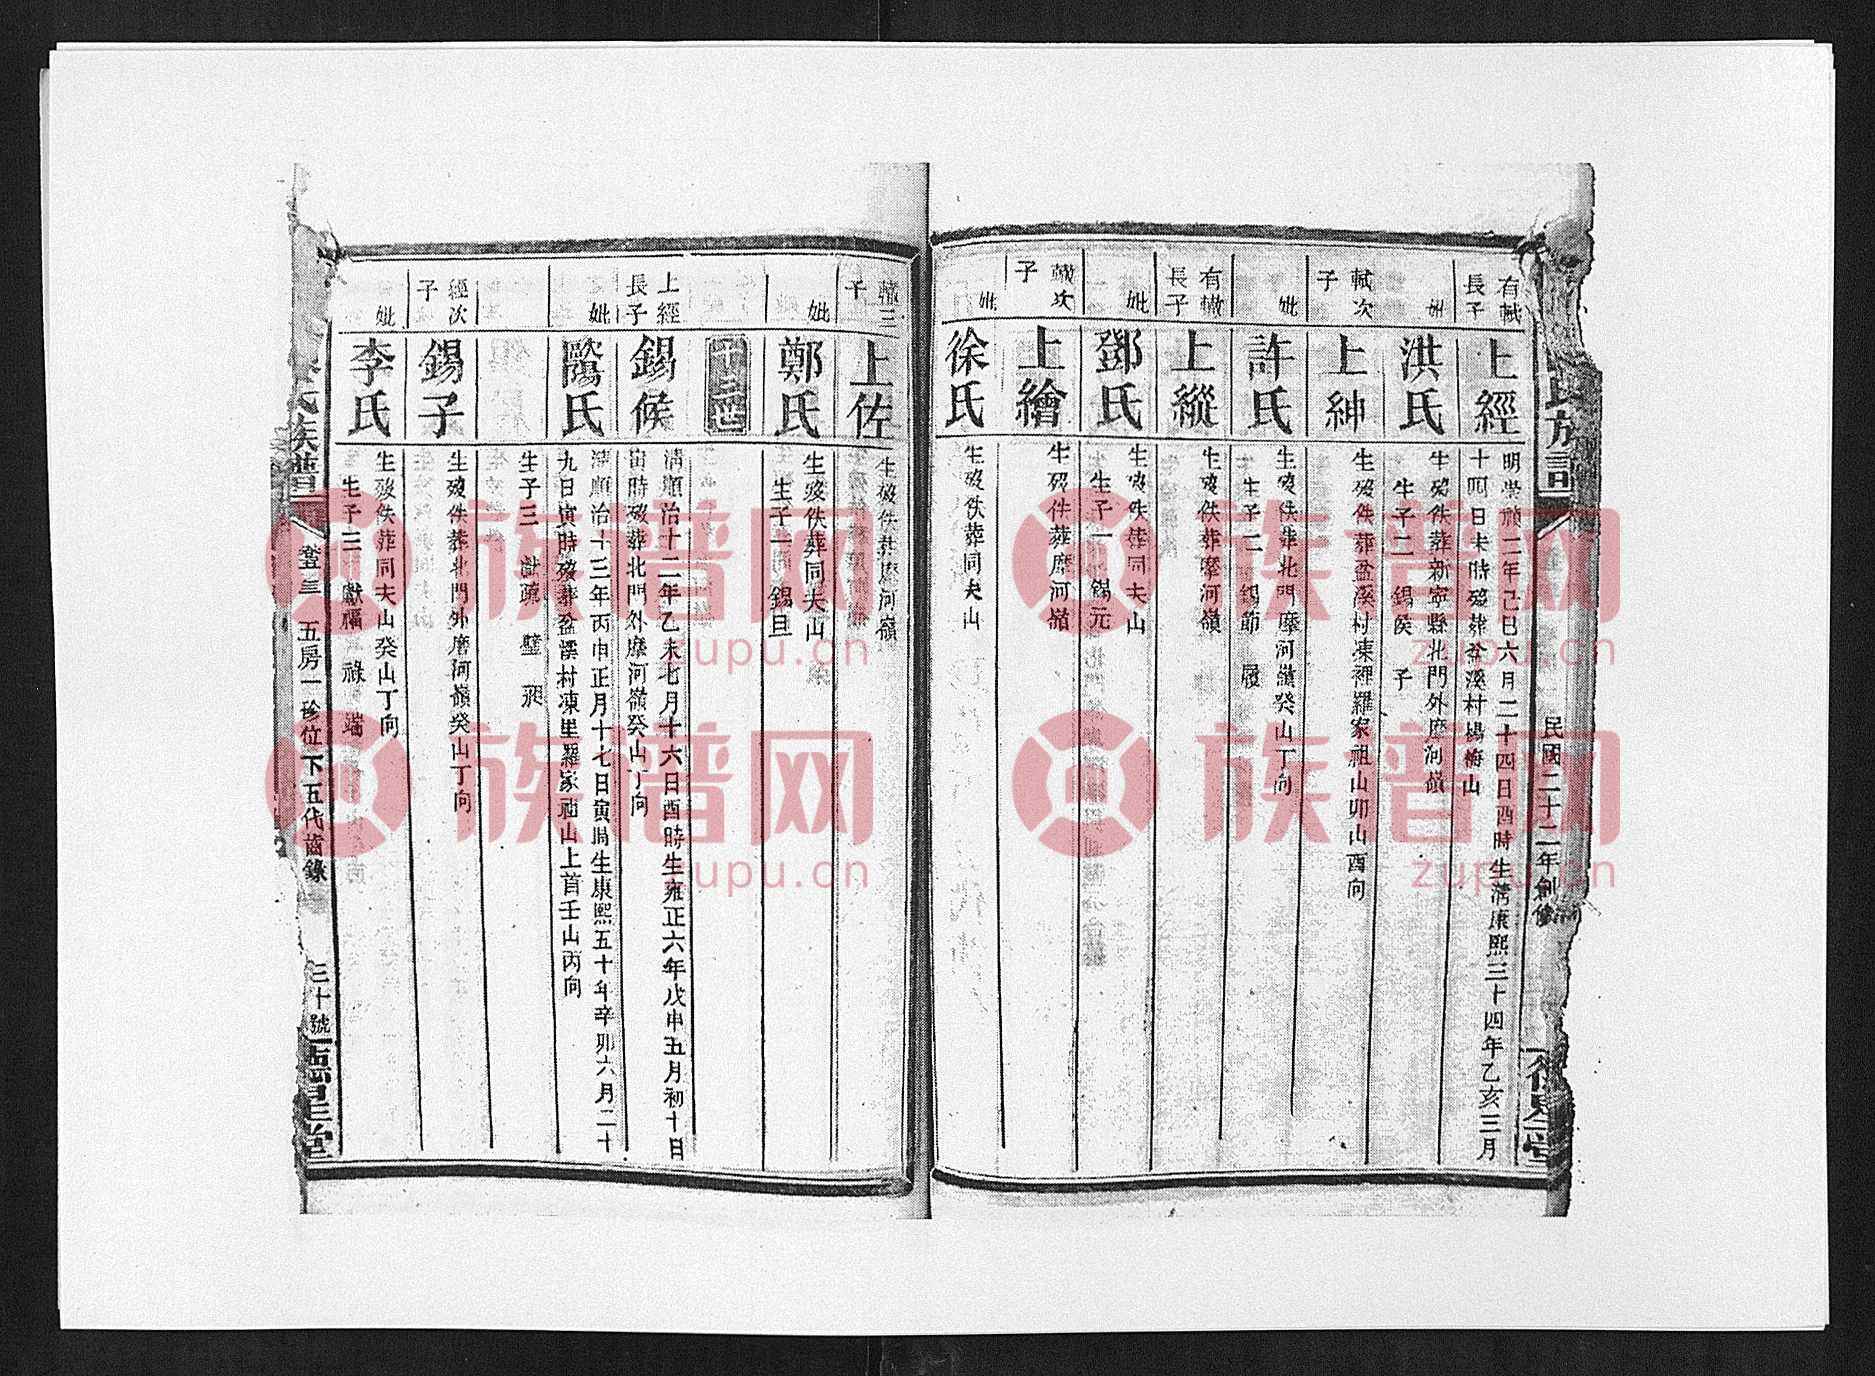 氏族譜
民國二十二年創修
有軾
長子
上經
明崇禎二年己巳六月二十四日酉時生清康熙三十四年乙亥三月
十四日未時歿葬盆溪村楊梅山
妣
洪氏
生歿佚葬新寧縣北門外摩河嶺
生子二 錫侯 子
軾次
子
上紳
生歿佚葬盆溪村凍裡羅家祖山卯山酉向
妣
許氏
生歿佚葬北門摩河嶺癸山丁向
生子二 錫節 履
有轍
長子
上縱
生歿佚葬摩河嶺
妣
鄧氏
生歿佚葬同夫山
生子一 錫元
轍次
子
上繪
生歿佚葬摩河嶺
妣
徐氏
生歿佚葬同夫山
轍三
子
上佐
生歿佚葬摩河嶺
妣
鄭氏
生歿佚葬同夫山
生子一 錫旦
十三世
上經
長子
錫候
清順治十二年乙未七月十六日酉時生雍正六年戊申五月初十日
寅時歿葬北門外摩河嶺癸山丁向
妣
陽氏
清順治十三年丙申正月十七日寅時生康熙五十年辛卯六月二十
九日寅時歿葬盆溪村凍里羅家祖山上首壬山丙向
生子三 獻 璧
經次
子
錫子
生歿佚葬北門外摩河嶺癸山丁向
妣
李氏
生歿佚葬同夫山癸山丁向
生子三 獻福 祿 端
氏族譜
卷三 五房一珍位下五代齒錄
三十號
德星堂
族普网
zupu.cn
族普网
zupu.cn
族普网
zupu.cn
族普网
zupu.cn